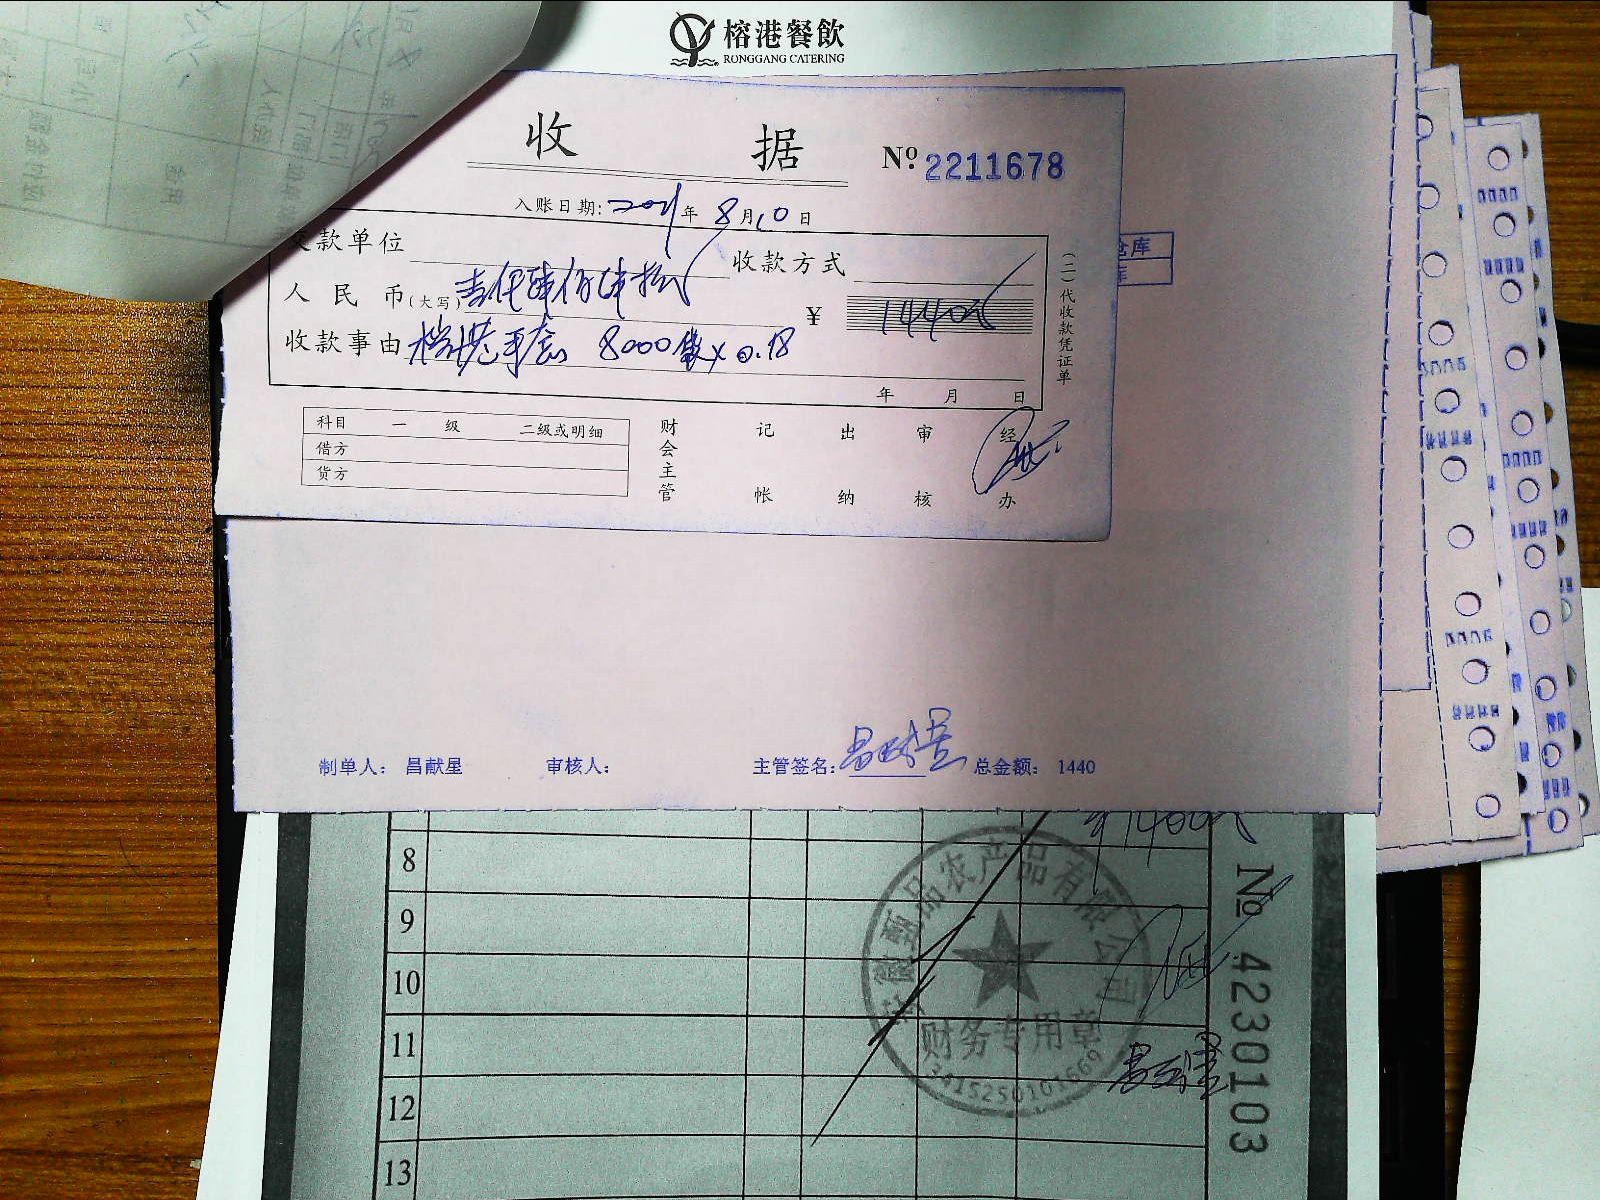 榕港餐飲
RONGGANG CATERING
收 据 Nº 2211678
入账日期: 2021年 8月10日
交款单位 收款方式
人民币(大写) 壹仟肆佰肆拾元 ¥ 1440元
收款事由 榕港手套 8000隻×0.18
年 月 日
(二)代收款凭证单
科目 一级 二级或明细
借方
货方
财会主管 记帐 出纳 审核 经办
仓库
库
制单人: 昌献星 审核人: 主管签名: 昌献星 总金额: 1440
8
9
10
11
12
13
安徽甄品农产品有限公司
财务专用章
3415250101669
昌献星
Nº 4230103